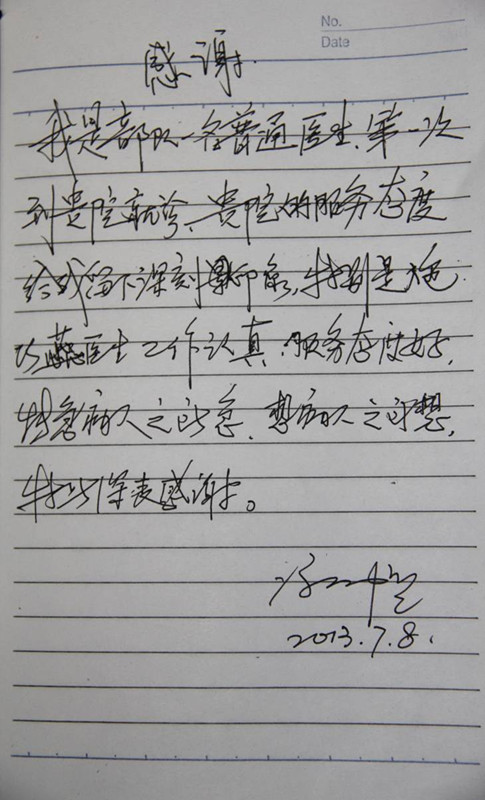 No.
Date
感谢
我是部队一名普通医生,第一次
到贵院就诊、贵院的服务态度
给我留下深刻印象,特别是
医生工作认真、服务态度好,
病人之所急、想病人之所想,
特此深表感谢。
2013.7.8.